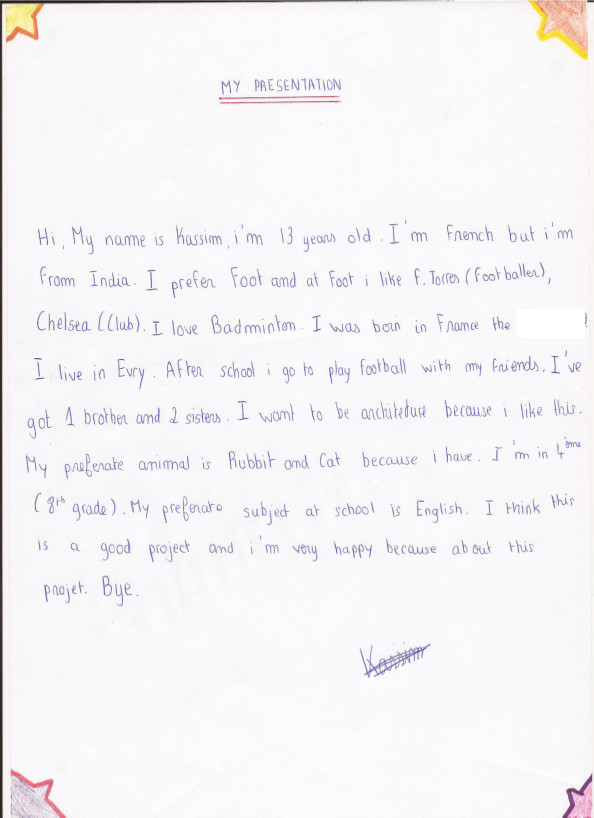 MY PRESENTATION
Hi, My name is Kassim, i'm 13 years old. I'm French but i'm
from India. I prefer Foot and at Foot i like F. Torres (Footballer),
Chelsea (Club). I love Badminton. I was born in France the
I live in Evry. After school i go to play football with my friends. I've
got 1 brother and 2 sisters. I want to be architedure because i like this.
My preferate animal is Rubbit and Cat because i have. I'm in 4ème
(8th grade). My preferate subject at school is English. I think this
is a good project and i'm very happy because about this
projet. Bye.
Kassim